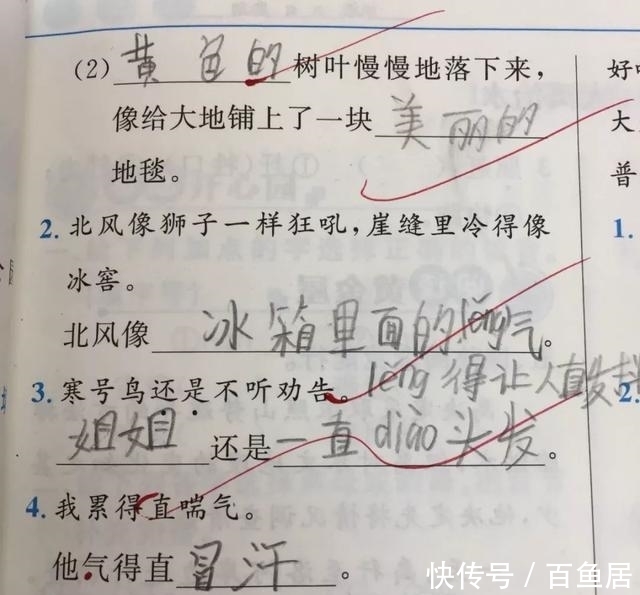 (2) 黄色的树叶慢慢地落下来，
像给大地铺上了一块美丽的
地毯。
2. 北风像狮子一样狂吼，崖缝里冷得像
冰窖。
北风像冰箱里面的lěng气。
lěng得让人直发抖
3. 寒号鸟还是不听劝告。
姐姐还是一直diào头发。
4. 我累得直喘气。
他气得直冒汗。
好
大
普
1.
2.
快传号 / 百鱼居